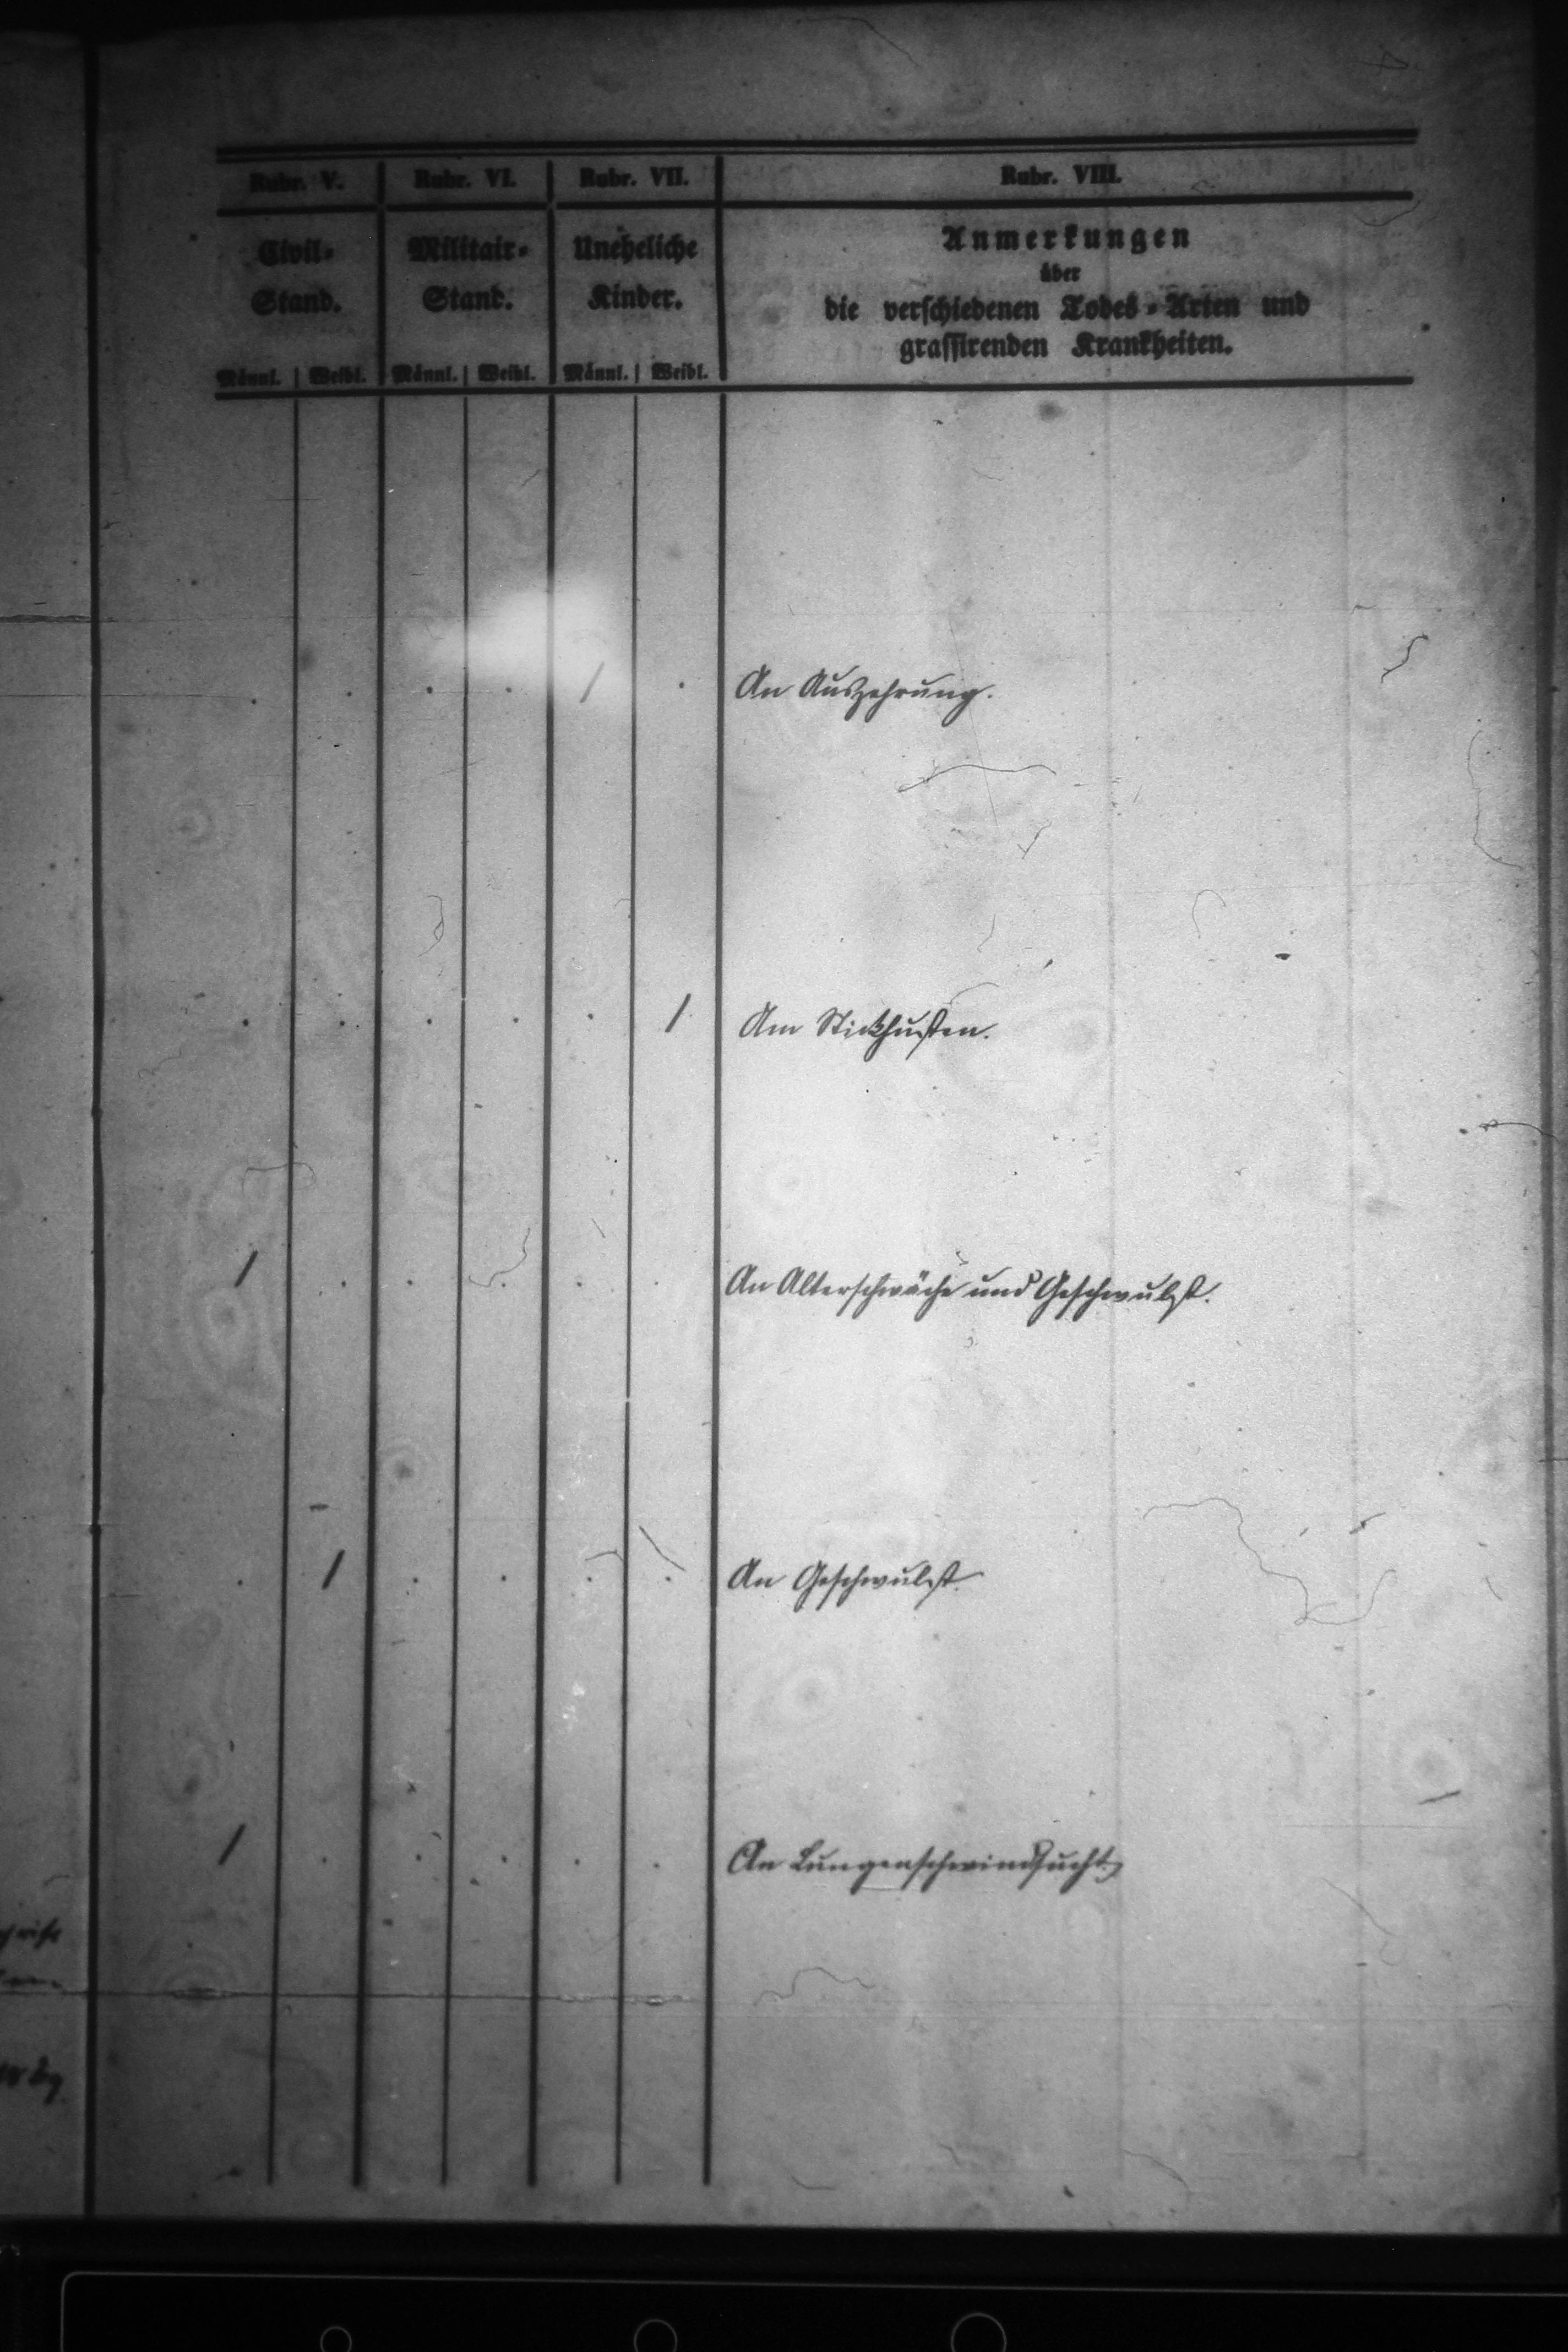 Rubr. V. Rubr. VI. Rubr. VII. Rubr. VIII.
Civil-Stand. Militair-Stand. Uneheliche Kinder. Anmerkungen
über
die verschiedenen Todes-Arten und
grassirenden Krankheiten.
Männl. | Weibl. Männl. | Weibl. Männl. | Weibl.
. . . 1 . An Auszehrung.
. . . . . 1 Am Stickhusten.
1 . . . . . An Alterschwäche und Geschwulst.
. 1 . . . . An Geschwulst.
1 . . . . . An Lungenschwindsucht.